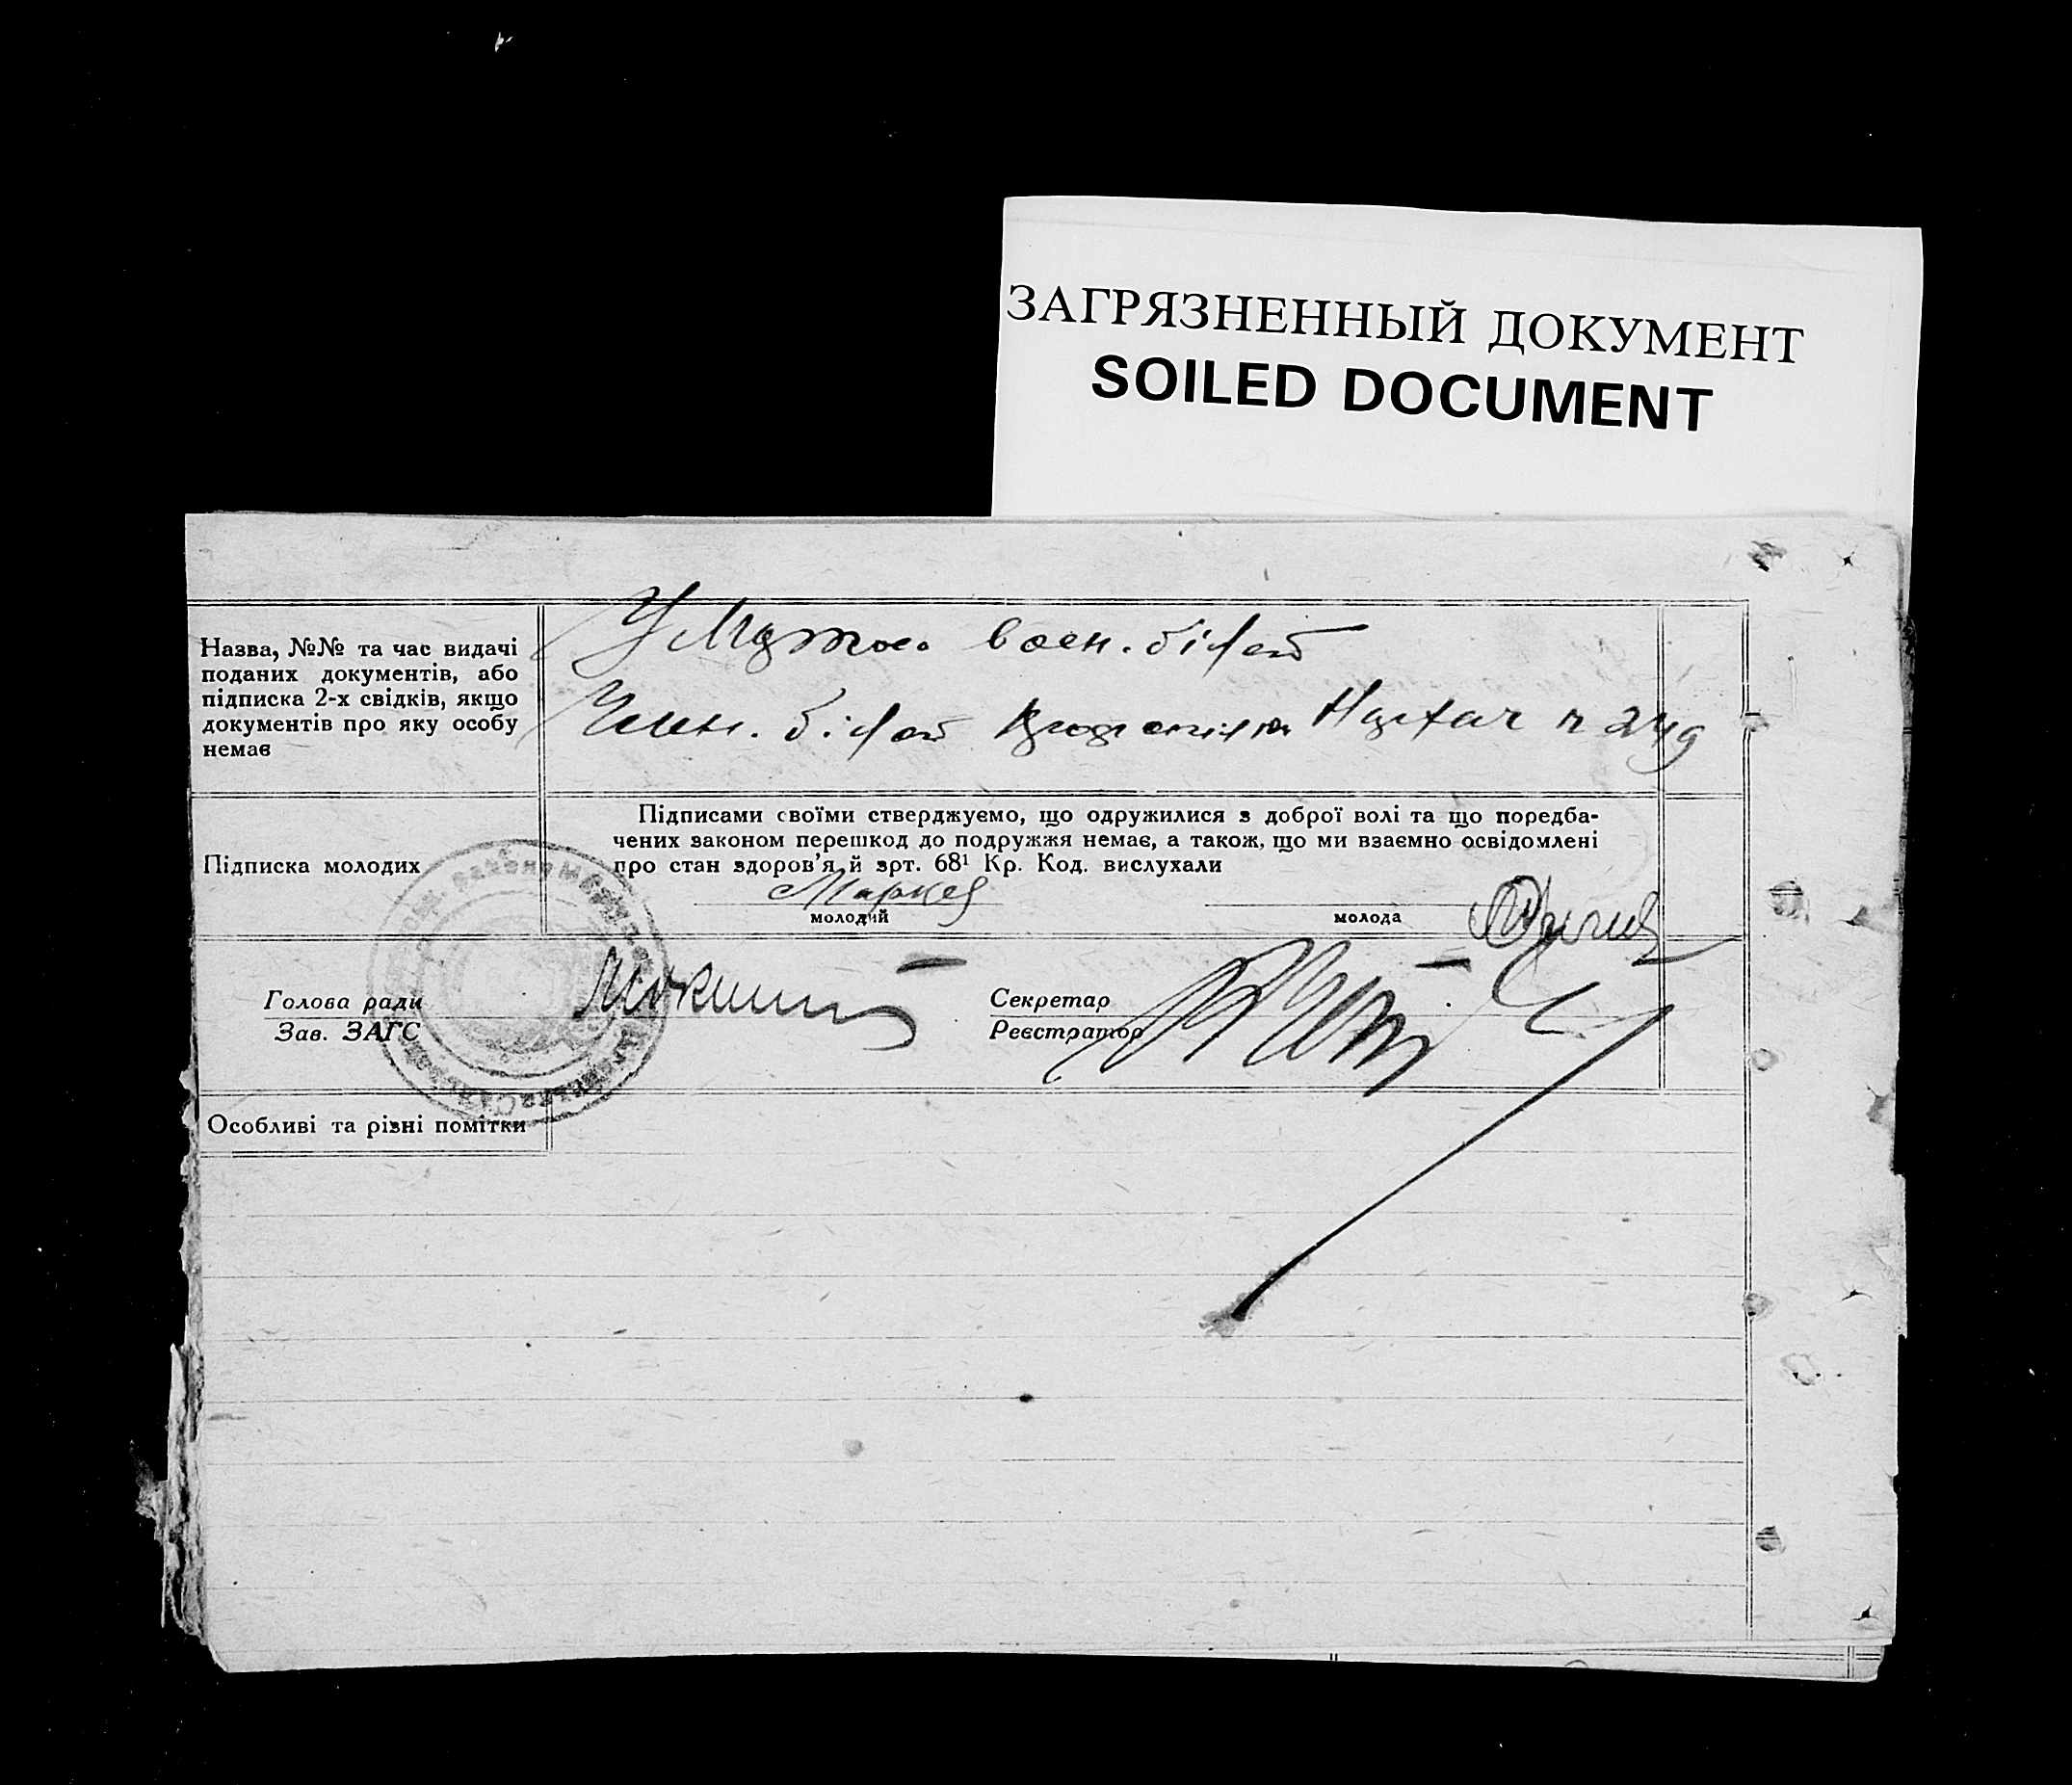 ЗАГРЯЗНЕННЫЙ ДОКУМЕНТ
SOILED DOCUMENT
Назва, №№ та час видачі
поданих документів, або
підписка 2-х свідків, якщо
документів про яку особу
немає
У воен. білет
білет
Підписка молодих
Підписами своїми стверджуємо, що одружилися з доброї волі та що поредба-
чених законом перешкод до подружжя немає, а також, що ми взаємно освідомлені
про стан здоров'я й зрт. 68¹ Кр. Код. вислухали
молодий
молода
Голова ради
Зав. ЗАГС
Секретар
Реєстратор
Особливі та різні помітки